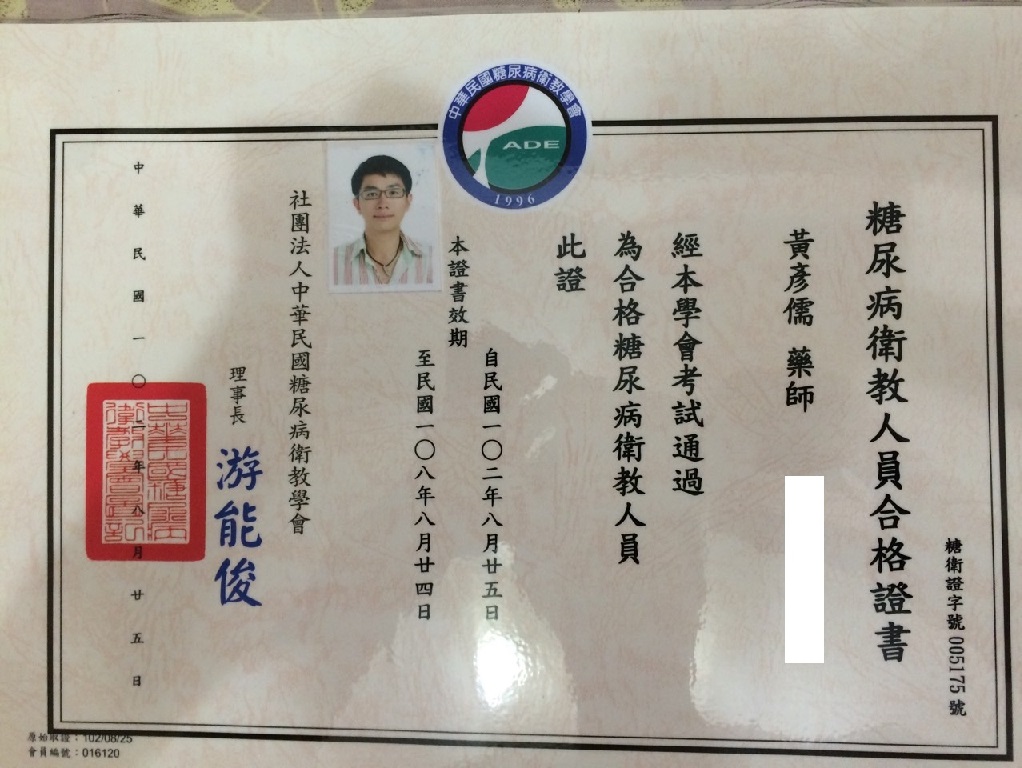 中華民國糖尿病衛教學會
ADE
1996
糖衛證字號 005175 號
糖尿病衛教人員合格證書
黃彥儒 藥師
經本學會考試通過
為合格糖尿病衛教人員
此證
本證書效期
自民國一〇二年八月廿五日
至民國一〇八年八月廿四日
社團法人中華民國糖尿病衛教學會
理事長 游能俊
中華民國一〇二年八月廿五日
原始取證：102/08/25
會員編號：016120